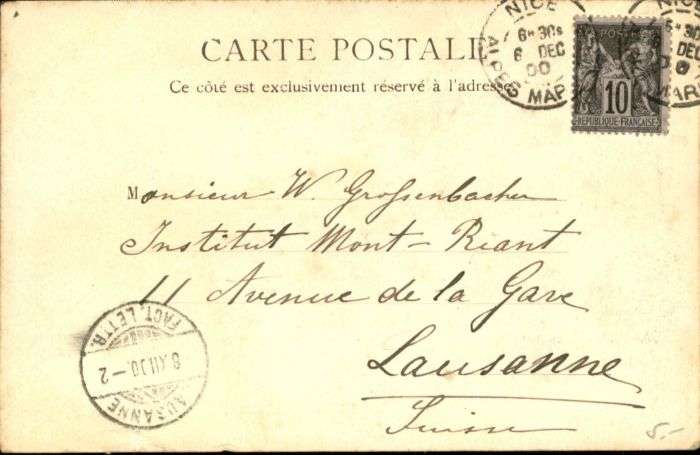 CARTE POSTALE
Ce côté est exclusivement réservé à l'adresse
NICE
6H 30S
6 DEC
00
ALPES MAR
POSTE
10
REPUBLIQUE FRANÇAISE
Monsieur W. Grossenbacher
Institut Mont-Riant
11 Avenue de la Gare
Lausanne
Suisse
LAUSANNE
8.XII.00.-2
FACT. LETTR.
5.-